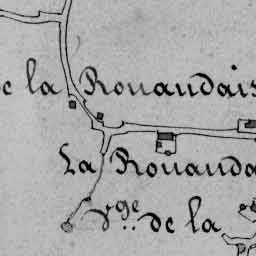 de la Rouandais
La Rouanda
de la